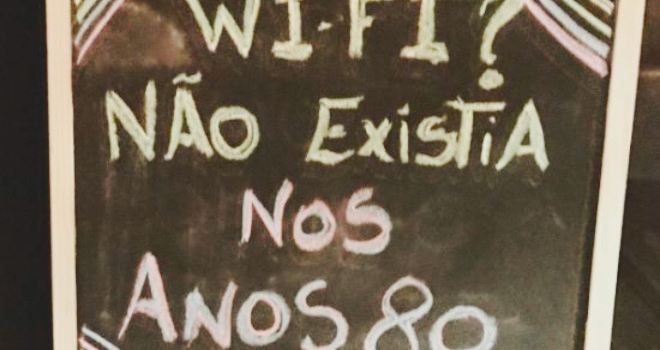 WI-FI?
NÃO EXISTIA
NOS
ANOS 80